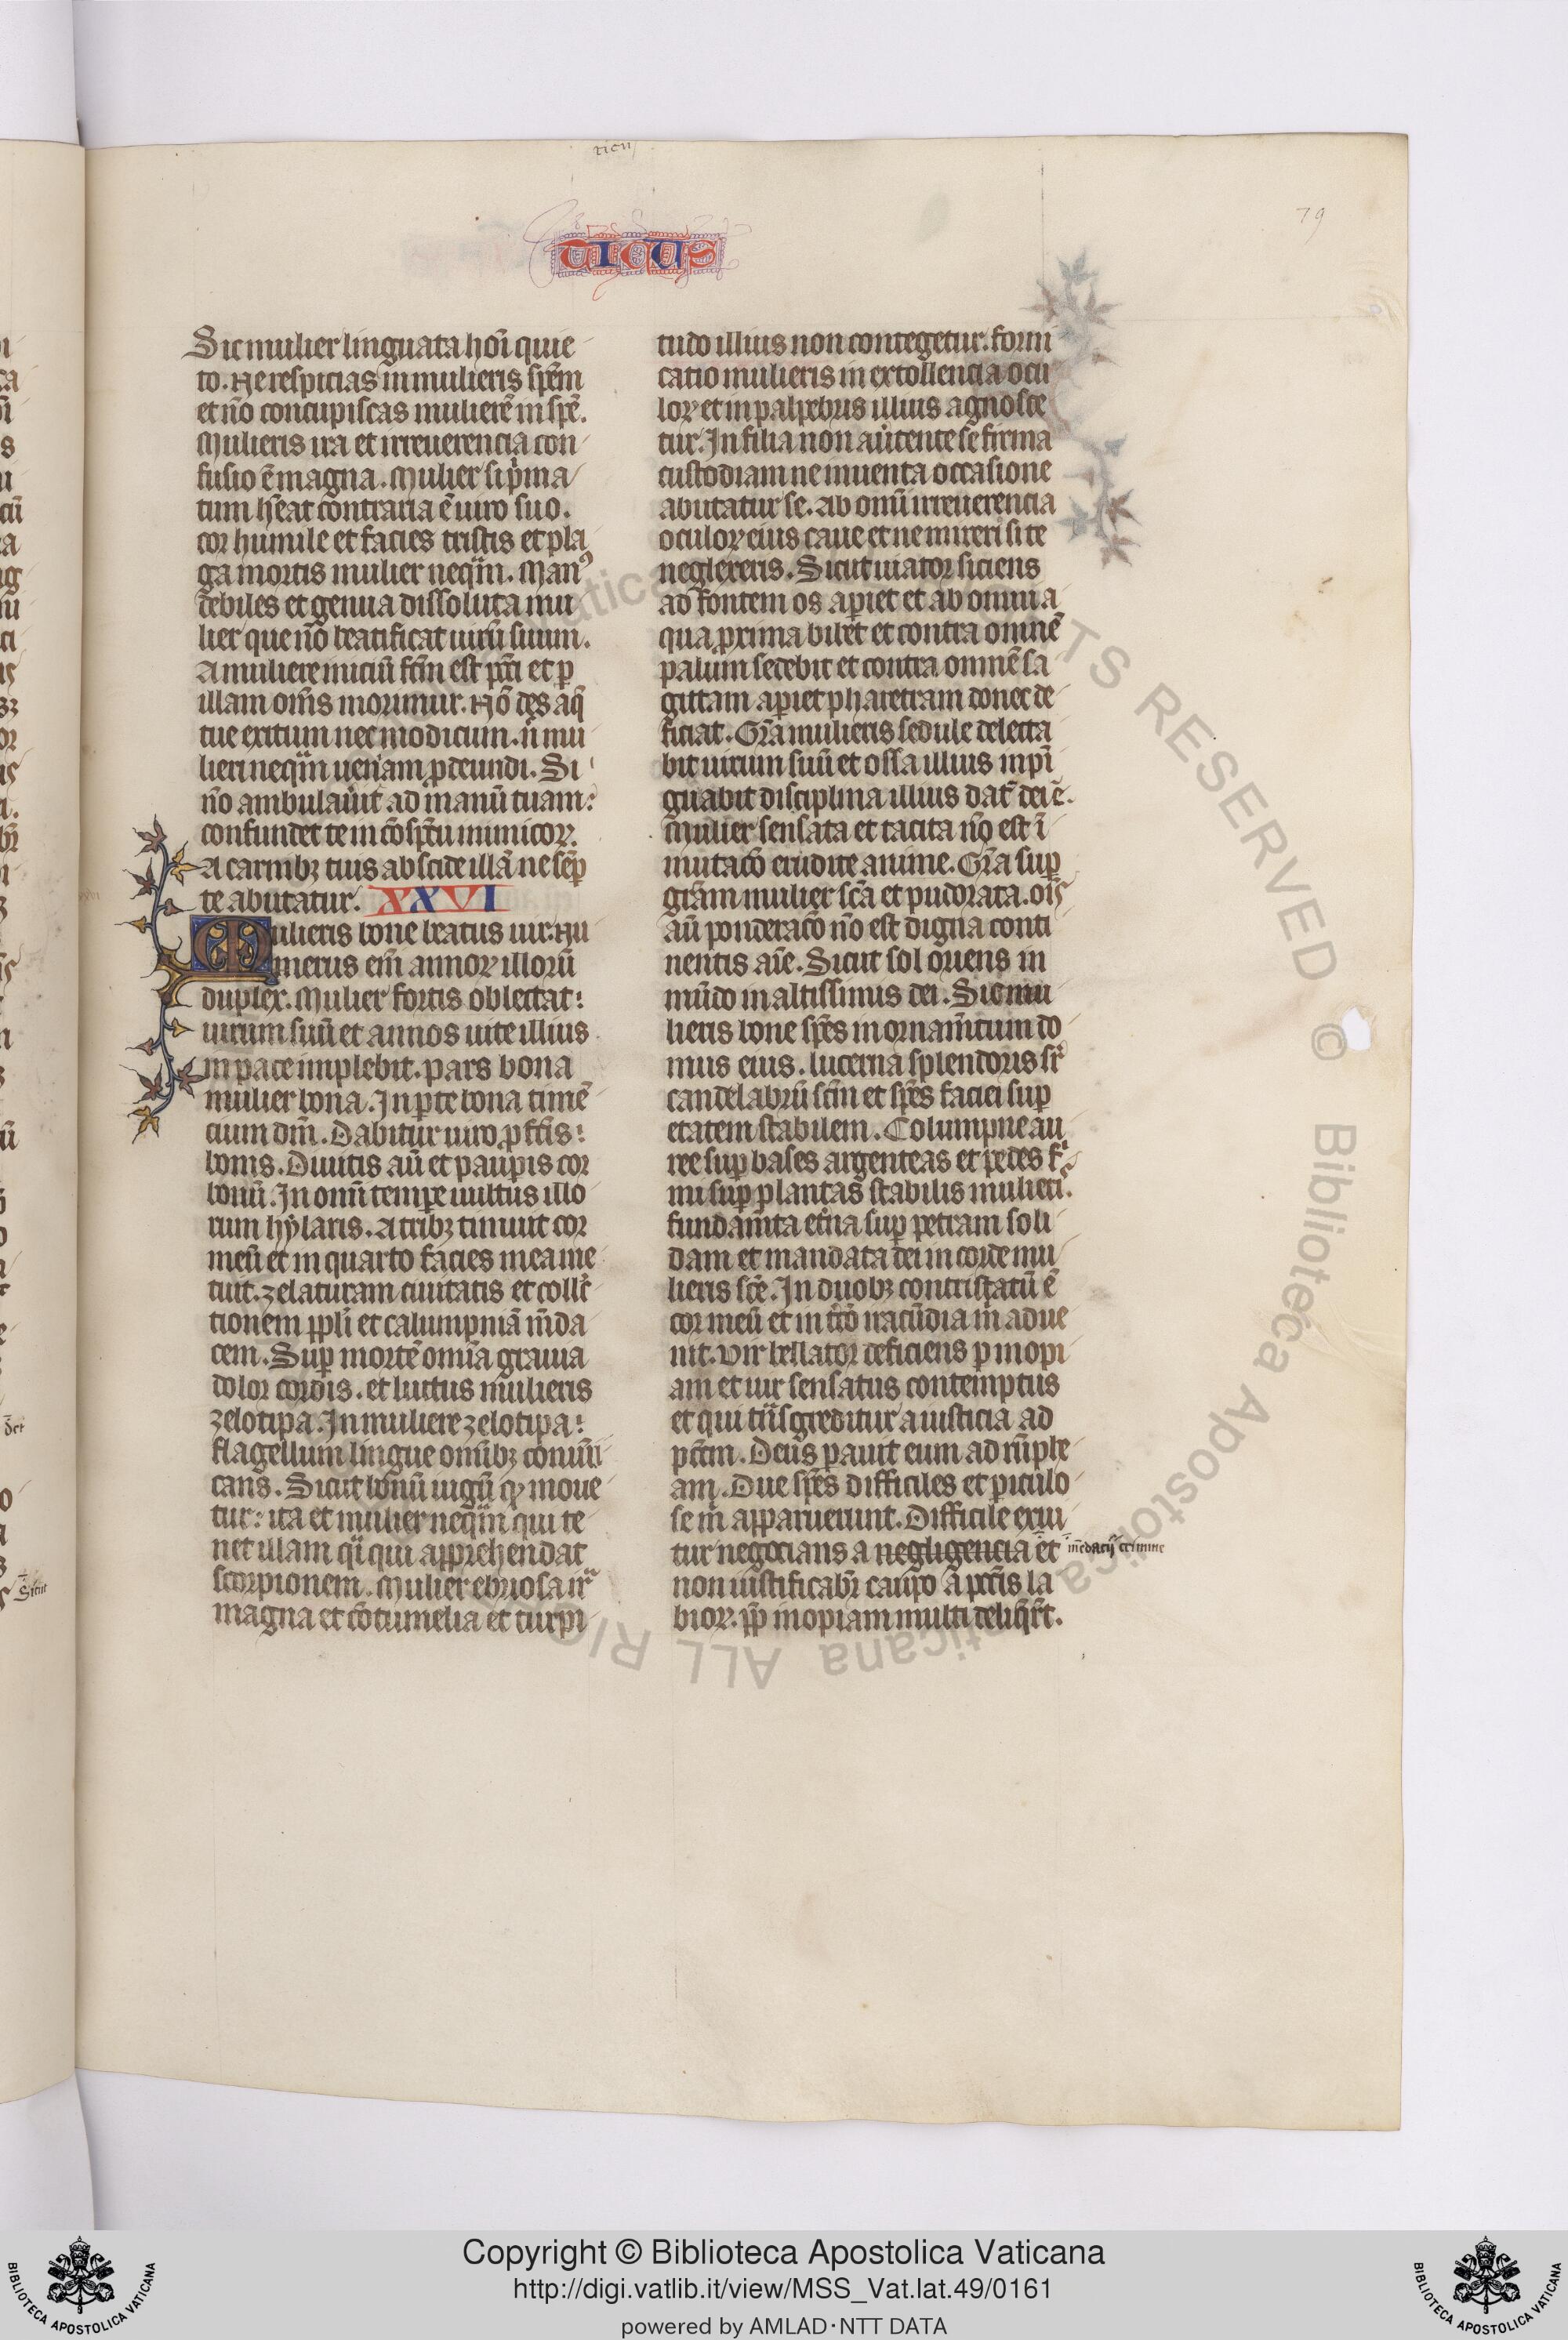 ticus
79
TICUS
Sic mulier linguata hoī quie
to. Ne respicias in mulieris spēm
et nō concupiscas mulierē in spē.
Mulieris ira et irreuerencia con
fusio ē magna. Mulier si pͥma
tum hēat contraria ē uiro suo.
cor humile et facies tristis et pla
ga mortis mulier neqͣm. Manꝰ
debiles et genua dissoluta mu
lier que nō beatificat uirū suum.
A muliere iniciū fcm̄ est pcc̄i et ꝑ
illam om̄s morimur. Nō des aq̄
tue exitum nec modicum. n̄ mu
lieri neqͣm ueniam ꝓdeundi. Si
nō ambulau̾it ad manū tuam:
confundet te in cōspc̄tu inimicoꝝ.
A carnibꝫ tuis abscide illā ne semꝑ
te abutatur. XXVI
Mulieris bone beatus uir. Nu
merus em̄ annoꝝ illorū
duplex. Mulier fortis oblectat:
uirum suū et annos uite illius
in pace implebit. pars bona
mulier bona. In ꝑte bona timē
cium dm̄. Dabitur uiro ꝓ fc̄is:
bonis. Diuitis aū et pauꝑis cor
bonū. In omī tempe uultus illo
rum hylaris. A tribꝫ timuit cor
meū et in quarto facies mea me
tuit. zelaturam ciuitatis et coll̄c
tionem ppl̄i et calumpniā m̄da
cem. Suꝑ mortē omīa grauia
dolor cordis. et luctus mulieris
zelotipa. In muliere zelotipa:
flagellum lingue omībꝫ cōmūi
cans. Sicut bonū iugū qꝫ moue
tur: ita et mulier neqͣm qui te
net illam qͣi qui apprehendat
scorpionem. Mulier ebriosa irͣ
magna et cōtumelia et turpi
tudo illius non contegetur. forni
catio mulieris in extollencia ocu
loꝝ et in palpebris illius agnosce
tur. In filia non au̾tente se firma
custodiam ne inuenta occasione
abutatur se. Ab omī irreuerencia
oculoꝝ eius caue et ne mireri si te
neglexeris. Sicut uiator siciens
ad fontem os aperiet et ab omni a
qua ꝓxima bibet et contra omnē
palum sedebit et contra omnē sa
gittam aperiet pharetram donec de
ficiat. Grā mulieris sedule delecta
bit uirum suū et ossa illius inpī
guabit disciplina illius dat̄ dei ē.
Mulier sensata et tacita nō est ī
mutacō erudite anime. Grā suꝑ
grām mulier scā et pudorata. oīs
aū ponderacō nō est digna conti
nentis aīe. Sicut sol oriens in
mūdo in altissimus dei. Sic mu
lieris bone spēs in ornam̄tum do
mus eius. lucerna splendoris sr̄
candelabrū scm̄ et spēs faciei suꝑ
etatem stabilem. Columpne au
ree suꝑ bases argenteas et pedes fͥ
mi suꝑ plantas stabilis mulieris.
fundam̄ta et̾na suꝑ petram soli
dam et mandata dei in corde mu
lieris scē. In duobꝫ contristatū ē
cor meū et in t̾cō iracūdia m̄ adue
nit. Vir bellator deficiens ꝑ inopi
am et uir sensatus contemptus
et qui tͣnsgreditur a iusticia ad
pccm̄. Deus ꝑauit eum ad rūphe
am. Due spēs difficiles et ꝑiculo
se m̄ apparuerunt. Difficile exui
tur negocians a negligencia et
mēdacij crimine
non iustificabr̄ caupo a pccīs la
bioꝝ. ꝓp̄ inopiam multi deliq̄rt.
Copyright © Biblioteca Apostolica Vaticana
http://digi.vatlib.it/view/MSS_Vat.lat.49/0161
powered by AMLAD·NTT DATA